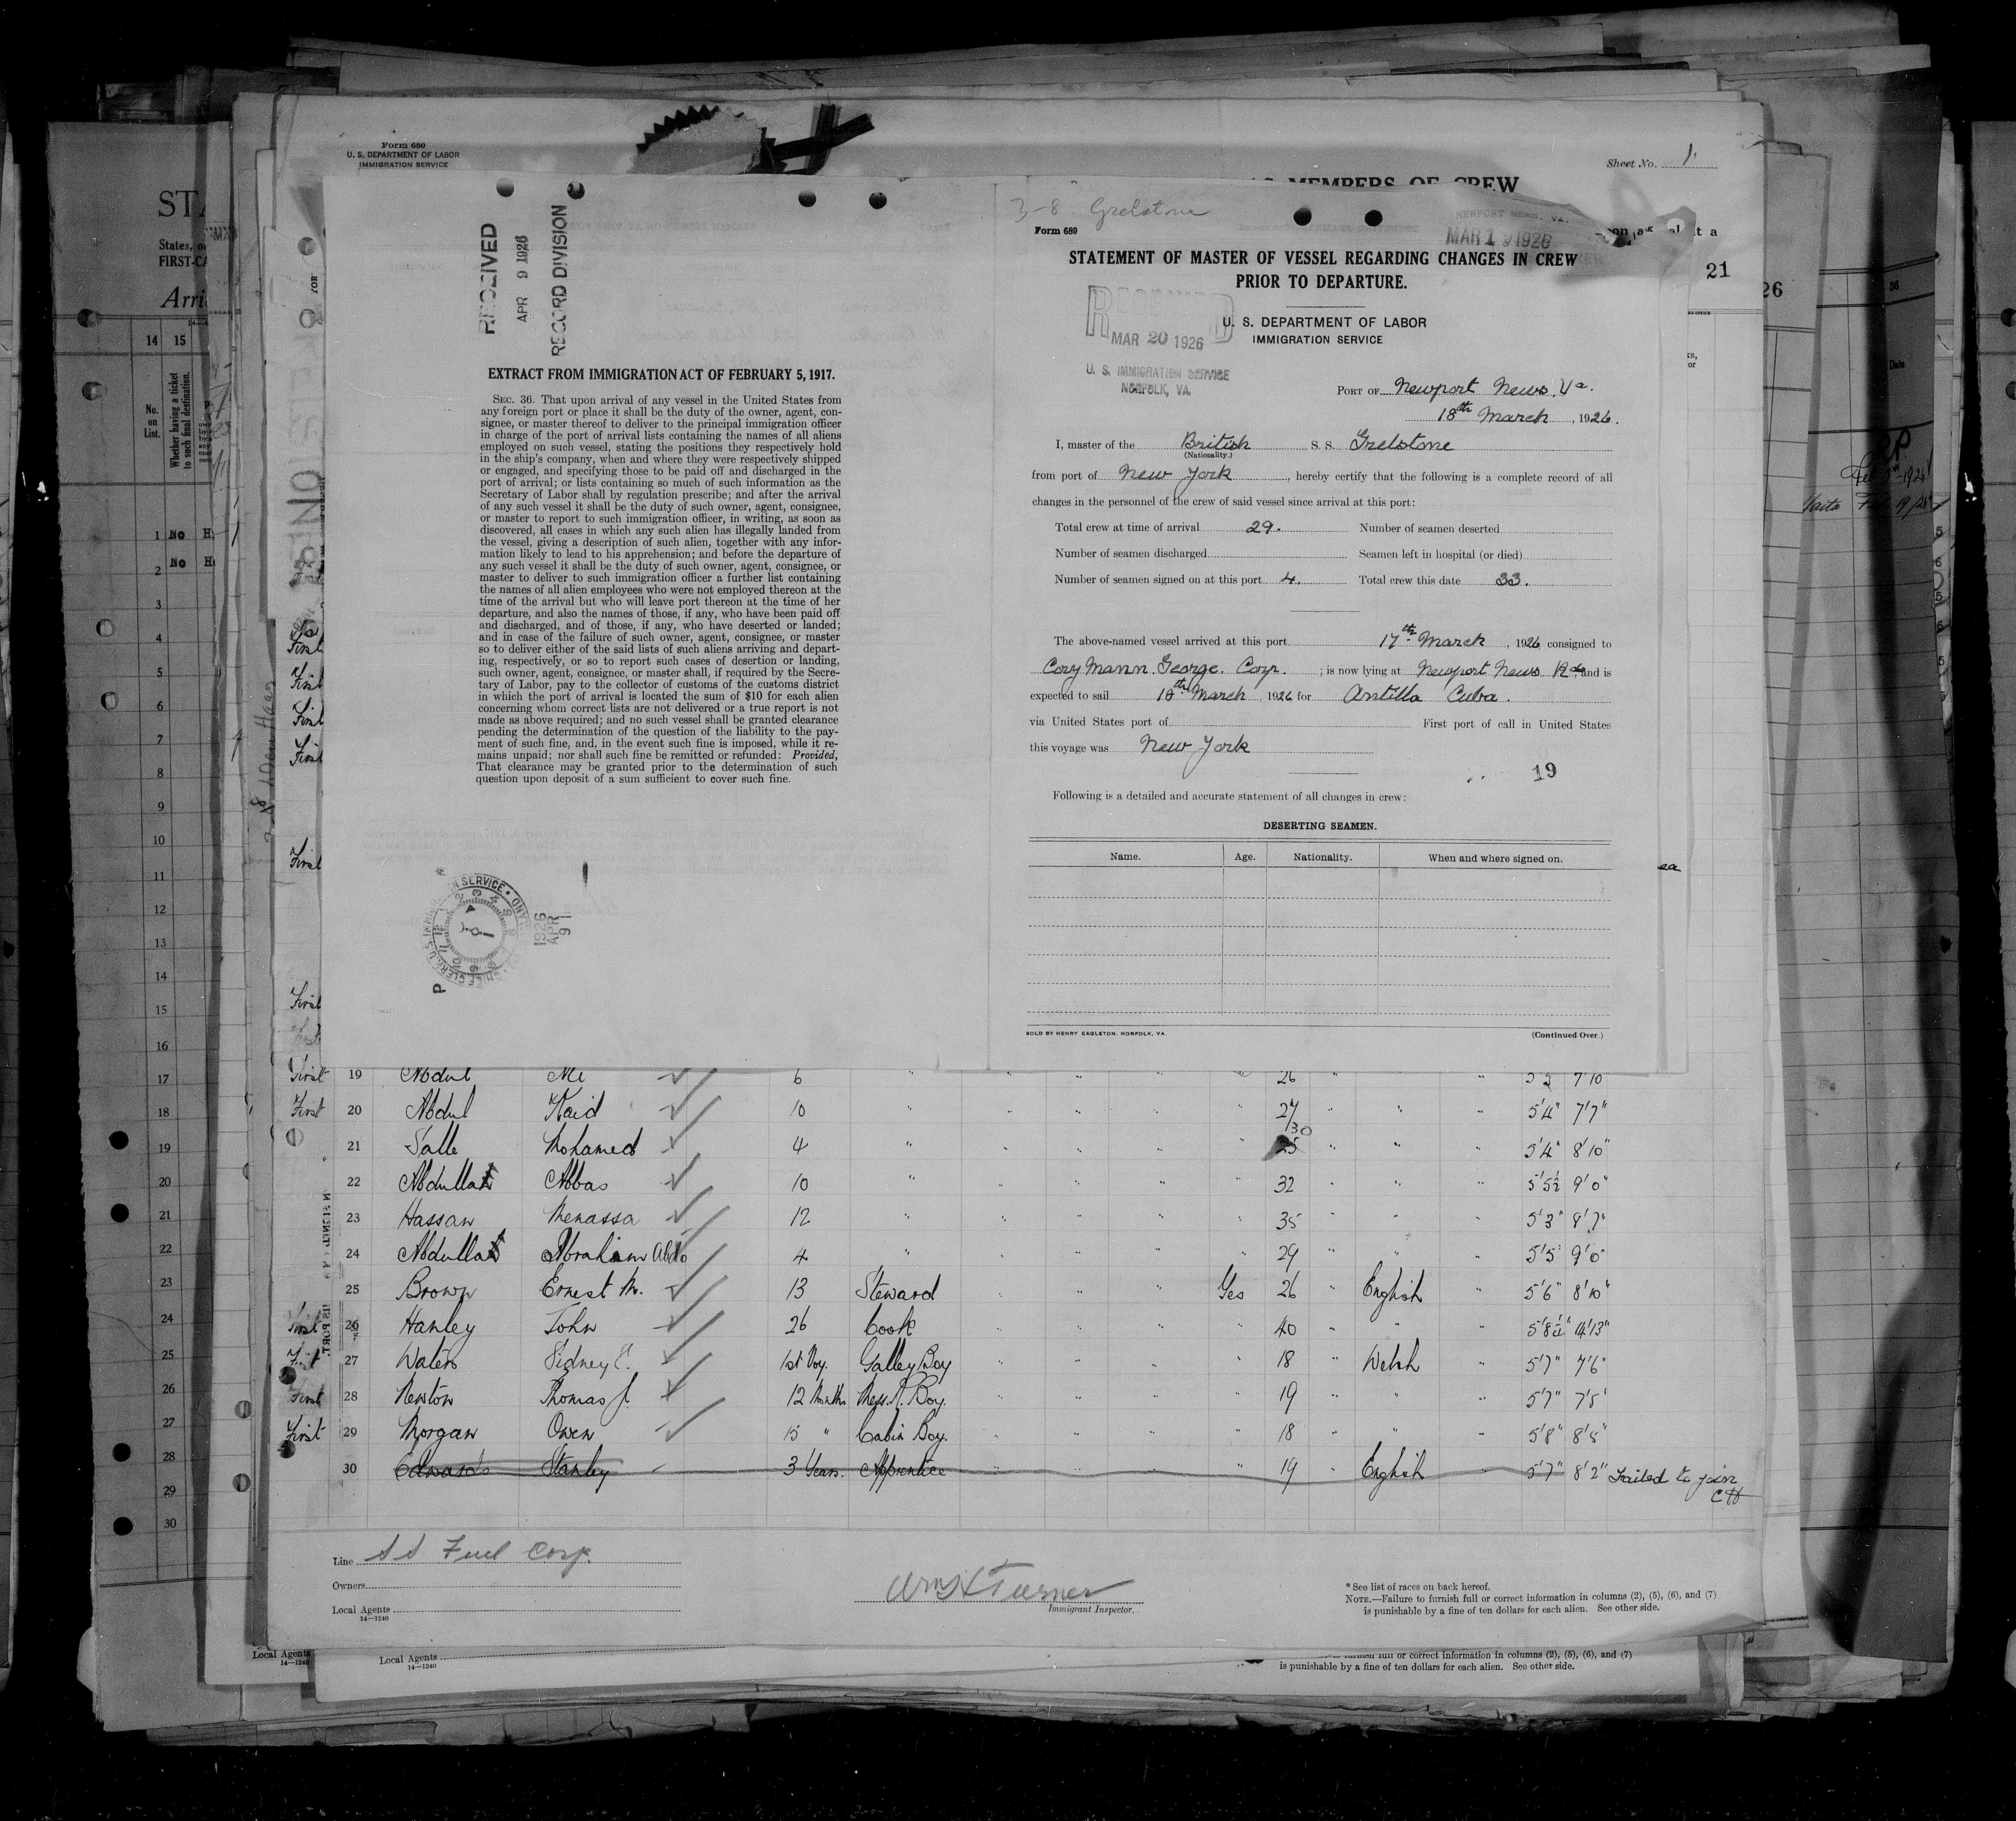 Form 680
U. S. DEPARTMENT OF LABOR
IMMIGRATION SERVICE
Sheet No. 1
MEMBERS OF CREW
21
RECEIVED
APR 9 1926
RECORD DIVISION
EXTRACT FROM IMMIGRATION ACT OF FEBRUARY 5, 1917.
SEC. 36. That upon arrival of any vessel in the United States from
any foreign port or place it shall be the duty of the owner, agent, con-
signee, or master thereof to deliver to the principal immigration officer
in charge of the port of arrival lists containing the names of all aliens
employed on such vessel, stating the positions they respectively hold
in the ship's company, when and where they were respectively shipped
or engaged, and specifying those to be paid off and discharged in the
port of arrival; or lists containing so much of such information as the
Secretary of Labor shall by regulation prescribe; and after the arrival
of any such vessel it shall be the duty of such owner, agent, consignee,
or master to report to such immigration officer, in writing, as soon as
discovered, all cases in which any such alien has illegally landed from
the vessel, giving a description of such alien, together with any infor-
mation likely to lead to his apprehension; and before the departure of
any such vessel it shall be the duty of such owner, agent, consignee, or
master to deliver to such immigration officer a further list containing
the names of all alien employees who were not employed thereon at the
time of the arrival but who will leave port thereon at the time of her
departure, and also the names of those, if any, who have been paid off
and discharged, and of those, if any, who have deserted or landed;
and in case of the failure of such owner, agent, consignee, or master
so to deliver either of the said lists of such aliens arriving and depart-
ing, respectively, or so to report such cases of desertion or landing,
such owner, agent, consignee, or master shall, if required by the Secre-
tary of Labor, pay to the collector of customs of the customs district
in which the port of arrival is located the sum of $10 for each alien
concerning whom correct lists are not delivered or a true report is not
made as above required; and no such vessel shall be granted clearance
pending the determination of the question of the liability to the pay-
ment of such fine, and, in the event such fine is imposed, while it re-
mains unpaid; nor shall such fine be remitted or refunded: Provided,
That clearance may be granted prior to the determination of such
question upon deposit of a sum sufficient to cover such fine.
1926 APR 9
3-8 Grelstone
Form 689
NEWPORT NEWS, VA.
MAR 19 1926
STATEMENT OF MASTER OF VESSEL REGARDING CHANGES IN CREW
PRIOR TO DEPARTURE.
RECEIVED
MAR 20 1926
U. S. IMMIGRATION SERVICE
NORFOLK, VA.
U. S. DEPARTMENT OF LABOR
IMMIGRATION SERVICE
PORT OF Newport News, Va.
18th March, 1926.
I, master of the British S. S. Grelstone
(Nationality.)
from port of New York, hereby certify that the following is a complete record of all
changes in the personnel of the crew of said vessel since arrival at this port:
Total crew at time of arrival 29. Number of seamen deserted
Number of seamen discharged Seamen left in hospital (or died)
Number of seamen signed on at this port 4. Total crew this date 33.
The above-named vessel arrived at this port 17th March, 1926 consigned to
Cory Mann George. Corp. ; is now lying at Newport News Rds and is
expected to sail 18th March, 1926 for Antilla Cuba.
via United States port of First port of call in United States
this voyage was New York
19
Following is a detailed and accurate statement of all changes in crew:
DESERTING SEAMEN.
Name. Age. Nationality. When and where signed on.
SOLD BY HENRY EAGLETON, NORFOLK, VA. (Continued Over.)
First 19 Abdul Ali 6 " 26 " 5'2 7'10
First 20 Abdul Kaid 10 " 27 " 5'4" 7'7"
21 Salle Mohamed 4 " 25 30 " 5'4" 8'10"
22 Abdullah Abbas 10 " 32 " 5'5½ 9'0"
23 Hassan Menassa 12 " 35 " 5'3" 8'7"
24 Abdullah Abraham 4 " 29 " 5'5" 9'0"
25 Brown Ernest M. 13 Steward " Yes 26 " English " 5'6" 8'10"
First 26 Hanley John 26 Cook " 40 " 5'8½" 14'13"
First 27 Waters Sidney E. 1st Voy. Galley Boy " 18 " Welsh " 5'7" 7'6"
First 28 Newton Thomas J. 12 Months Mess R. Boy. " 19 " 5'7" 7'5"
First 29 Morgan Owen 15 " Cabin Boy. " 18 " 5'8" 8'8"
30 Edwards Stanley 3 Years. Apprentice " 19 " English " 5'7" 8'2" Failed to join
Line S S Fuel Corp.
Owners
Local Agents
14—1240
Wm H Turner
Immigrant Inspector.
* See list of races on back hereof.
NOTE.—Failure to furnish full or correct information in columns (2), (5), (6), and (7)
is punishable by a fine of ten dollars for each alien. See other side.
Local Agents
14—1240
Local Agents
14—1240
full or correct information in columns (2), (5), (6), and (7)
is punishable by a fine of ten dollars for each alien. See other side.